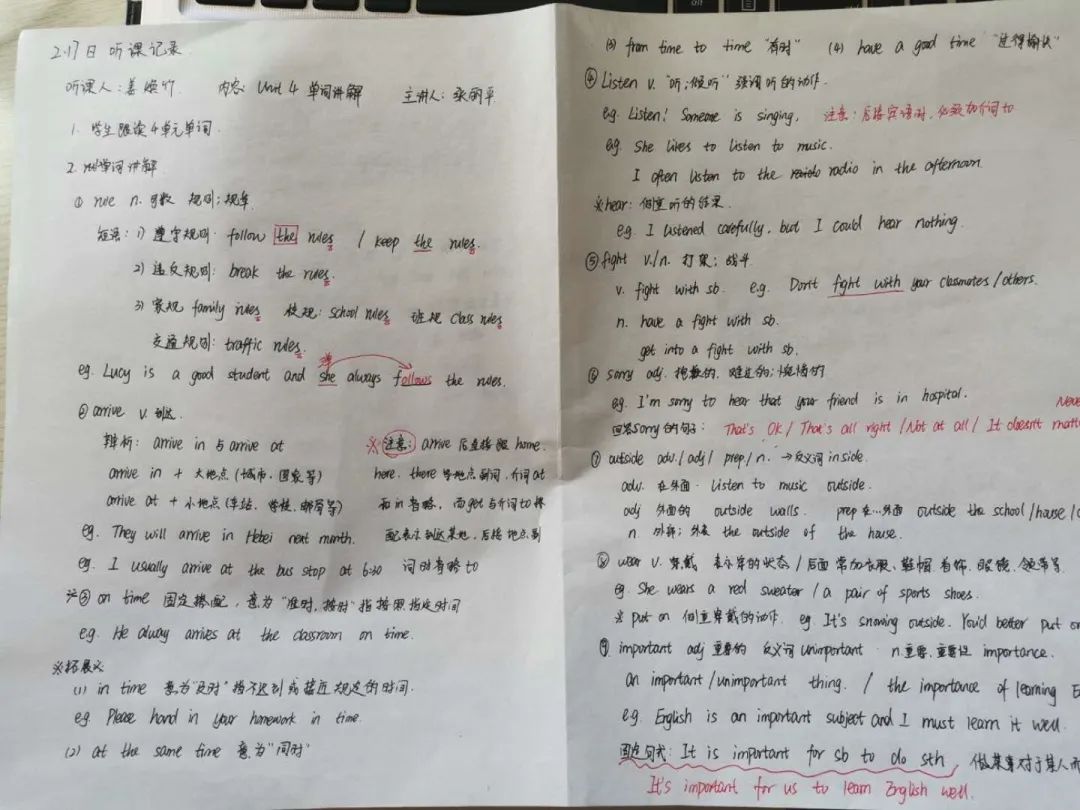 2.17日 听课记录
听课人:姜焕竹 内容: Unit 4 单词讲解 主讲人: 张丽平
1. 学生跟读4单元单词.
2. 单词讲解
① rule n. 可数 规则;规章
短语: 1) 遵守规则: follow the rules / keep the rules.
2) 违反规则: break the rules.
3) 家规 family rules 校规: school rules 班规 class rules
交通规则: traffic rules.
eg. Lucy is a good student and she always follows the rules.
② arrive v. 到达
辨析: arrive in 与 arrive at
arrive in + 大地点 (城市、国家等)
arrive at + 小地点 (车站、学校、邮局等)
eg. They will arrive in Hebei next month.
eg. I usually arrive at the bus stop at 6:30
※ 注意: arrive 后直接跟 home.
here. there 等地点副词, 介词at
和in省略, 而get与介词to搭
配表示到达某地, 后接地点副
词时省略to
※③ on time 固定搭配, 意为"准时, 按时"指按照指定时间
eg. He alway arrives at the classroom on time.
※拓展义
(1) in time 意为"及时"指不迟到或接近规定的时间.
eg. Please hand in your homework in time.
(2) at the same time 意为"同时"
(3) from time to time "有时" (4) have a good time "过得愉快"
④ Listen v. "听;倾听" 强调听的动作.
eg. Listen! Someone is singing. 注意: 后接宾语时, 必须加介词to
eg. She likes to listen to music.
I often listen to the raido radio in the afternoon
※hear: 侧重听的结果.
e.g. I listened carefully, but I could hear nothing.
⑤ fight v./n. 打架; 战斗.
v. fight with sb. e.g. Don't fight with your classmates / others.
n. have a fight with sb.
get into a fight with sb.
⑥ sorry adj. 抱歉的. 难过的;惋惜的
eg. I'm sorry to hear that your friend is in hospital.
回答sorry的句子: That's OK / That's all right / Not at all / It doesn't matt
Neve
⑦ outside adv./adj / prep / n. →反义词 inside.
adv. 在外面. Listen to music outside.
adj 外面的 outside walls. prep 在...外面 outside the school / house /
n. 外部; 外表 the outside of the house.
⑧ wear v. 穿戴 表示穿的状态 / 后面常加衣服、鞋帽 首饰. 眼镜. 领带等
eg. She wears a red sweater / a pair of sports shoes.
※ put on 侧重穿戴的动作. eg. It's snowing outside. You'd better put on
⑨ important adj 重要的 反义词 unimportant n.重要、重要性 importance.
an important / unimportant thing. / the importance of learning E
e.g. English is an important subject and I must learn it well.
固定句式: It is important for sb to do sth, 做某事对于某人而
It's important for us to learn English well.